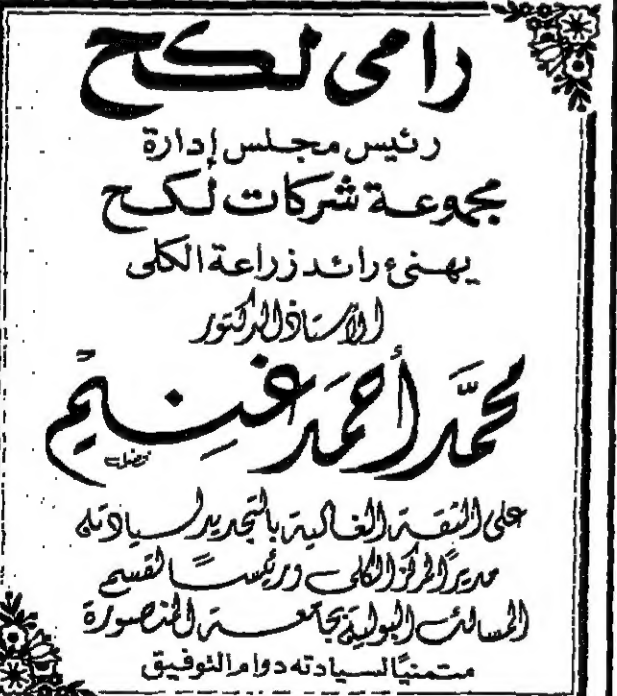 رامى لكح
رئيس مجلس إدارة
مجموعة شركات لكح
يهنئ رائد زراعة الكلى
الأستاذ الدكتور
محمد أحمد غنيم
على الثقة الغالية بالتجديد لسيادته
مديرًا لمركز الكلى ورئيسًا لقسم
المسالك البولية بجامعة المنصورة
متمنيًا لسيادته دوام التوفيق